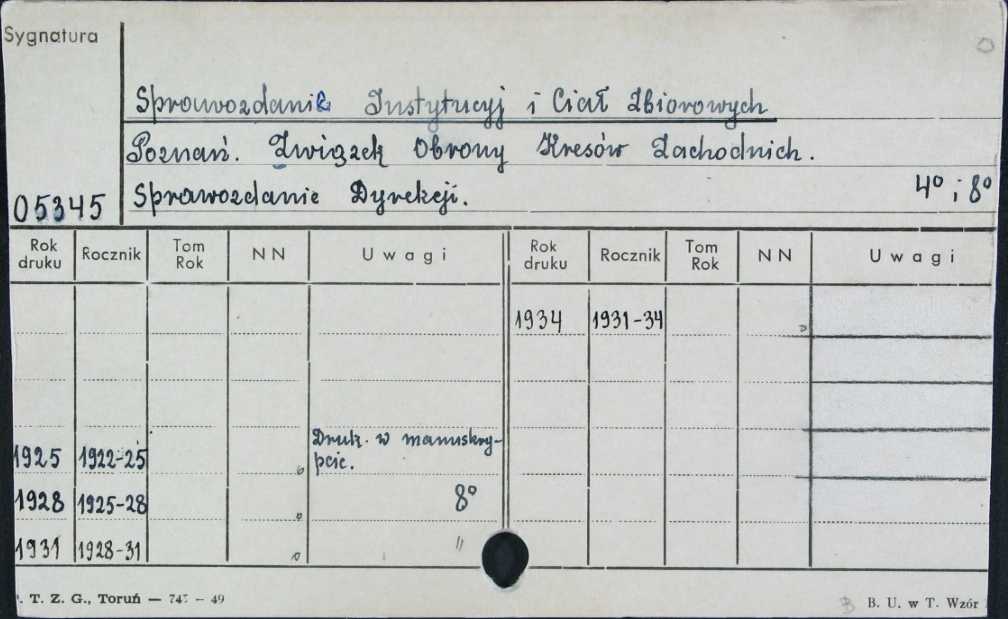 Sygnatura
Sprawozdanie Instytucyj i Ciał Zbiorowych
Poznań. Związek Obrony Kresów Zachodnich.
05345 Sprawozdanie Dyrekcji. 4° i 8°
Rok druku Rocznik Tom Rok NN Uwagi Rok druku Rocznik Tom Rok NN Uwagi
1934 1931-34
1925 1922-25 Druk. w manuskry-
pcie.
1928 1925-28 8°
1931 1928-31 "
. T. Z. G., Toruń — 747 - 49 B. U. w T. Wzór